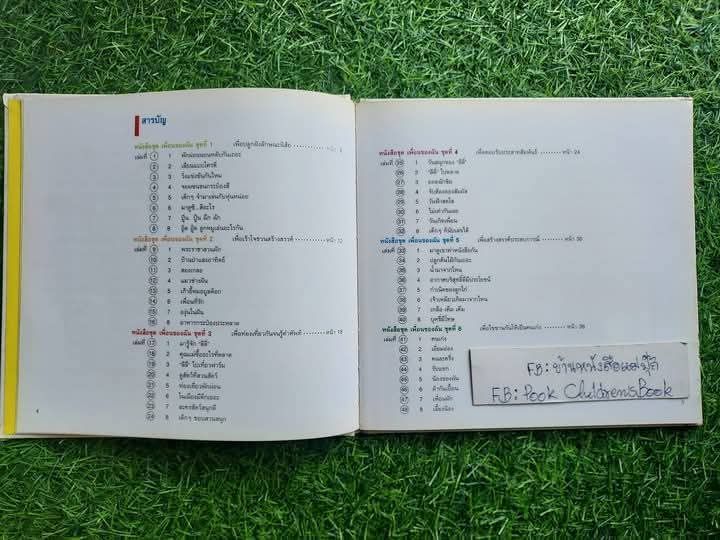 สารบัญ
หนังสือชุด เพื่อนของฉัน ชุดที่ 1 เพื่อปลูกฝังลักษณะนิสัย หน้า
เล่มที่ 1 1 พักผ่อนนอนหลับกันเถอะ
2 2 เลียนแบบใครดี
3 3 วิ่งแข่งขันกันไหม
4 4
5 5 เด็กๆ จ๋ามาเล่นกับหุ่นหน่อย
6 6 มาดูซิ...สีอะไร
7 7 ปู๊น ปู๊น ฉึก ฉัก
8 8 อู๊ด อู๊ด ลูกหมูเล่นอะไรกัน
หนังสือชุด เพื่อนของฉัน ชุดที่ 2 เพื่อเร้าใจชวนสร้างสรรค์ หน้า 12
เล่มที่ 9 1 พระราชาสวนผัก
10 2 บ้านป่าแสงอาทิตย์
11 3 สองเกลอ
12 4 แมวช่างฝัน
13 5 เก้าอี้หมอมูลค็อก
14 6 เพื่อนที่รัก
15 7 องุ่นในฝัน
16 8 อาหารกระป๋องประหลาด
หนังสือชุด เพื่อนของฉัน ชุดที่ 3 เพื่อท่องเที่ยวกันจนรู้คำศัพท์ หน้า 18
เล่มที่ 17 1 มารู้จัก "ลีลี่"
18 2 คุณแม่ซื้ออะไรที่ตลาด
19 3 "ลีลี่" ไปเที่ยวฟาร์ม
20 4 ดูสัตว์ที่สวนสัตว์
21 5 ท่องเที่ยวพักผ่อน
22 6 ในเมืองมีตึกเยอะ
23 7 ละครสัตว์สนุกดี
24 8 เด็กๆ ชอบสวนสนุก
4
หนังสือชุด เพื่อนของฉัน ชุดที่ 4 เพื่อตอบรับประสาทสัมผัส หน้า 24
เล่มที่ 25 1 วันสนุกของ "ลีลี่"
26 2 "ลีลี่" ไปตลาด
27 3 ลองผักชิม
28 4 จับต้องลองสัมผัส
29 5 วันฟ้าสดใส
30 6 ไม่เท่ากันเลย
31 7 วันเกิดเพื่อน
32 8 เด็กๆ ก็นับเลขได้
หนังสือชุด เพื่อนของฉัน ชุดที่ 5 เพื่อสร้างสรรค์ประสบการณ์ หน้า 30
เล่มที่ 33 1 มาดูเขาทำหนังสือกัน
34 2 ปลูกต้นไม้กันเถอะ
35 3 น้ำมาจากไหน
36 4 อากาศบริสุทธิ์ดีมีประโยชน์
37 5 กำเนิดของลูกไก่
38 6 เจ้าเหมียวเกิดมาจากไหน
39 7 เกลือ เค็ม เค็ม
40 8 บุหรี่มีโทษ
หนังสือชุด เพื่อนของฉัน ชุดที่ 6 เพื่อไขขานกันให้เป็นคนเก่ง หน้า 36
เล่มที่ 41 1 คนเก่ง
42 2 เยี่ยมย่อง
43 3
44 4 รับแขก
45 5 น้องของฉัน
46 6
47 7 เพื่อนรัก
48 8 เลี้ยงน้อง
FB: บ้านหนังสือแม่ปุ๊กี้
F.B: Pook Children'sBook